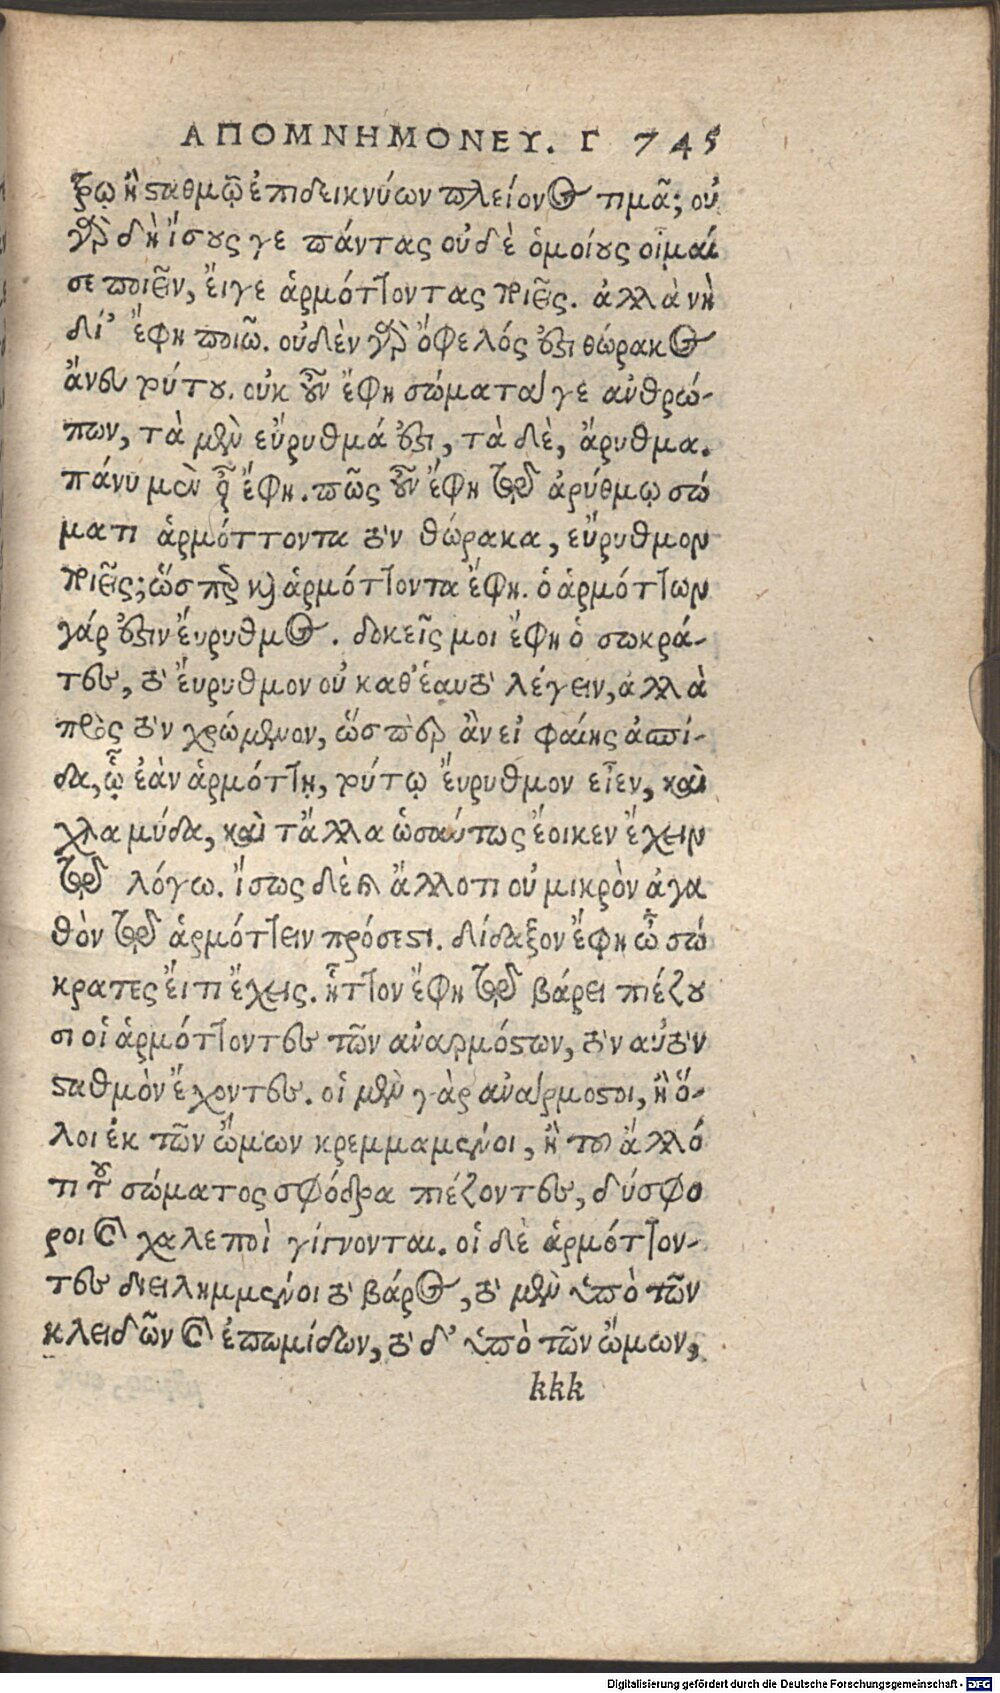 ΑΠΟΜΝΗΜΟΝΕΥ. Γ 745
τρῳ ἢ ϛαθμῷ ἐπιδεικνύων πλείονος τιμᾷ; οὐ
γὰρ δὴ ἴσους γε πάντας οὐδὲ ὁμοίους οἶμαί
σε ποιεῖν, ἔιγε ἁρμόττοντας ποιεῖς. ἀλλὰ νὴ
δί' ἔφη ποιῶ. οὐδὲν γὰρ ὄφελός ἐϛι θώρακος
ἄνευ τούτου. οὐκ οὖν ἔφη σώματα γε ανθρώ-
πων, τὰ μὲν εὔρυθμά ἐϛι, τὰ δὲ, ἄρυθμα.
πάνυ μὲν οὖν ἔφη. πῶς οὖν ἔφη τῷ ἀρύθμῳ σώ
ματι ἁρμόττοντα τὸν θώρακα, εὔρυθμον
ποιεῖς; ὥσπερ καὶ ἁρμόττοντα ἔφη. ὁ ἁρμόττων
γάρ ἐϛιν ἔυρυθμος. δοκεῖς μοι ἔφη ὁ σωκρά-
της, τὸ ἔυρυθμον οὐ καθ' ἑαυτὸ λέγειν, ἀλλὰ
πρὸς τὸν χρώμενον, ὥσπερ ἂν εἰ φαίης ἀσπί-
δα, ᾧ ἐὰν ἁρμόττῃ, τούτῳ ἔυρυθμον εἶεν, καὶ
χλαμύδα, καὶ τἄλλα ὡσαύτως ἔοικεν ἔχειν
τῷ λόγω. ἴσως δὲ καὶ ἄλλο τι οὐ μικρὸν ἀγα
θὸν τῷ ἁρμόττειν πρόσεϛι. δίδαξον ἔφη ὦ σώ
κρατες ἔι τι ἔχεις. ἧττον ἔφη τῷ βάρει πιέζου
σι οἱ ἁρμόττοντες τῶν αναρμόϛων, τὸν αὐτὸν
ϛαθμὸν ἔχοντες. οἱ μὲν γὰρ ανάρμοϛοι, ἢ ὅ-
λοι ἐκ τῶν ὤμων κρεμμαμενοι, ἢ που ἄλλό
τι τοῦ σώματος σφόδρα πιέζοντες, δύσφο
ροι καὶ χαλεποὶ γίγνονται. οἱ δὲ ἁρμόττον-
τες διειλημμένοι τὸ βάρος, τὸ μὲν ὑπὸ τῶν
κλειδῶν καὶ ἐπωμίδων, τὸ δ' ὑπὸ τῶν ὤμων,
kkk
Digitalisierung gefördert durch die Deutsche Forschungsgemeinschaft - DFG